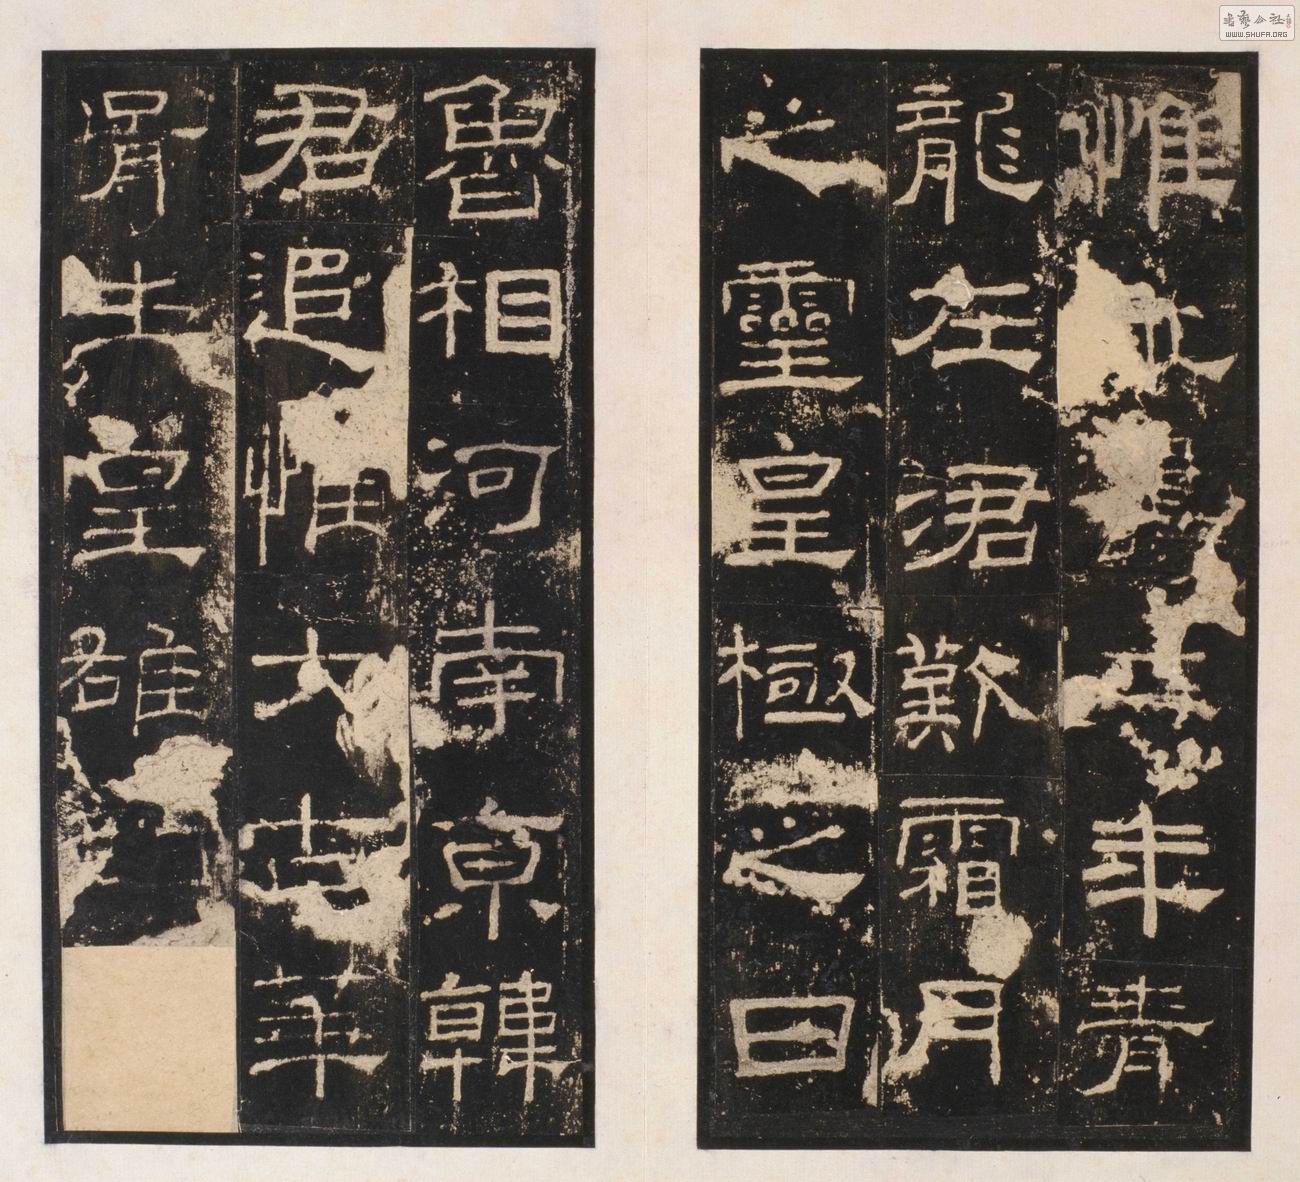 惟永壽二年青
龍在涒歎霜月
之靈皇極之日
魯相河南京韓
君追惟大古華
胥生皇雄
WWW.SHUFA.ORG